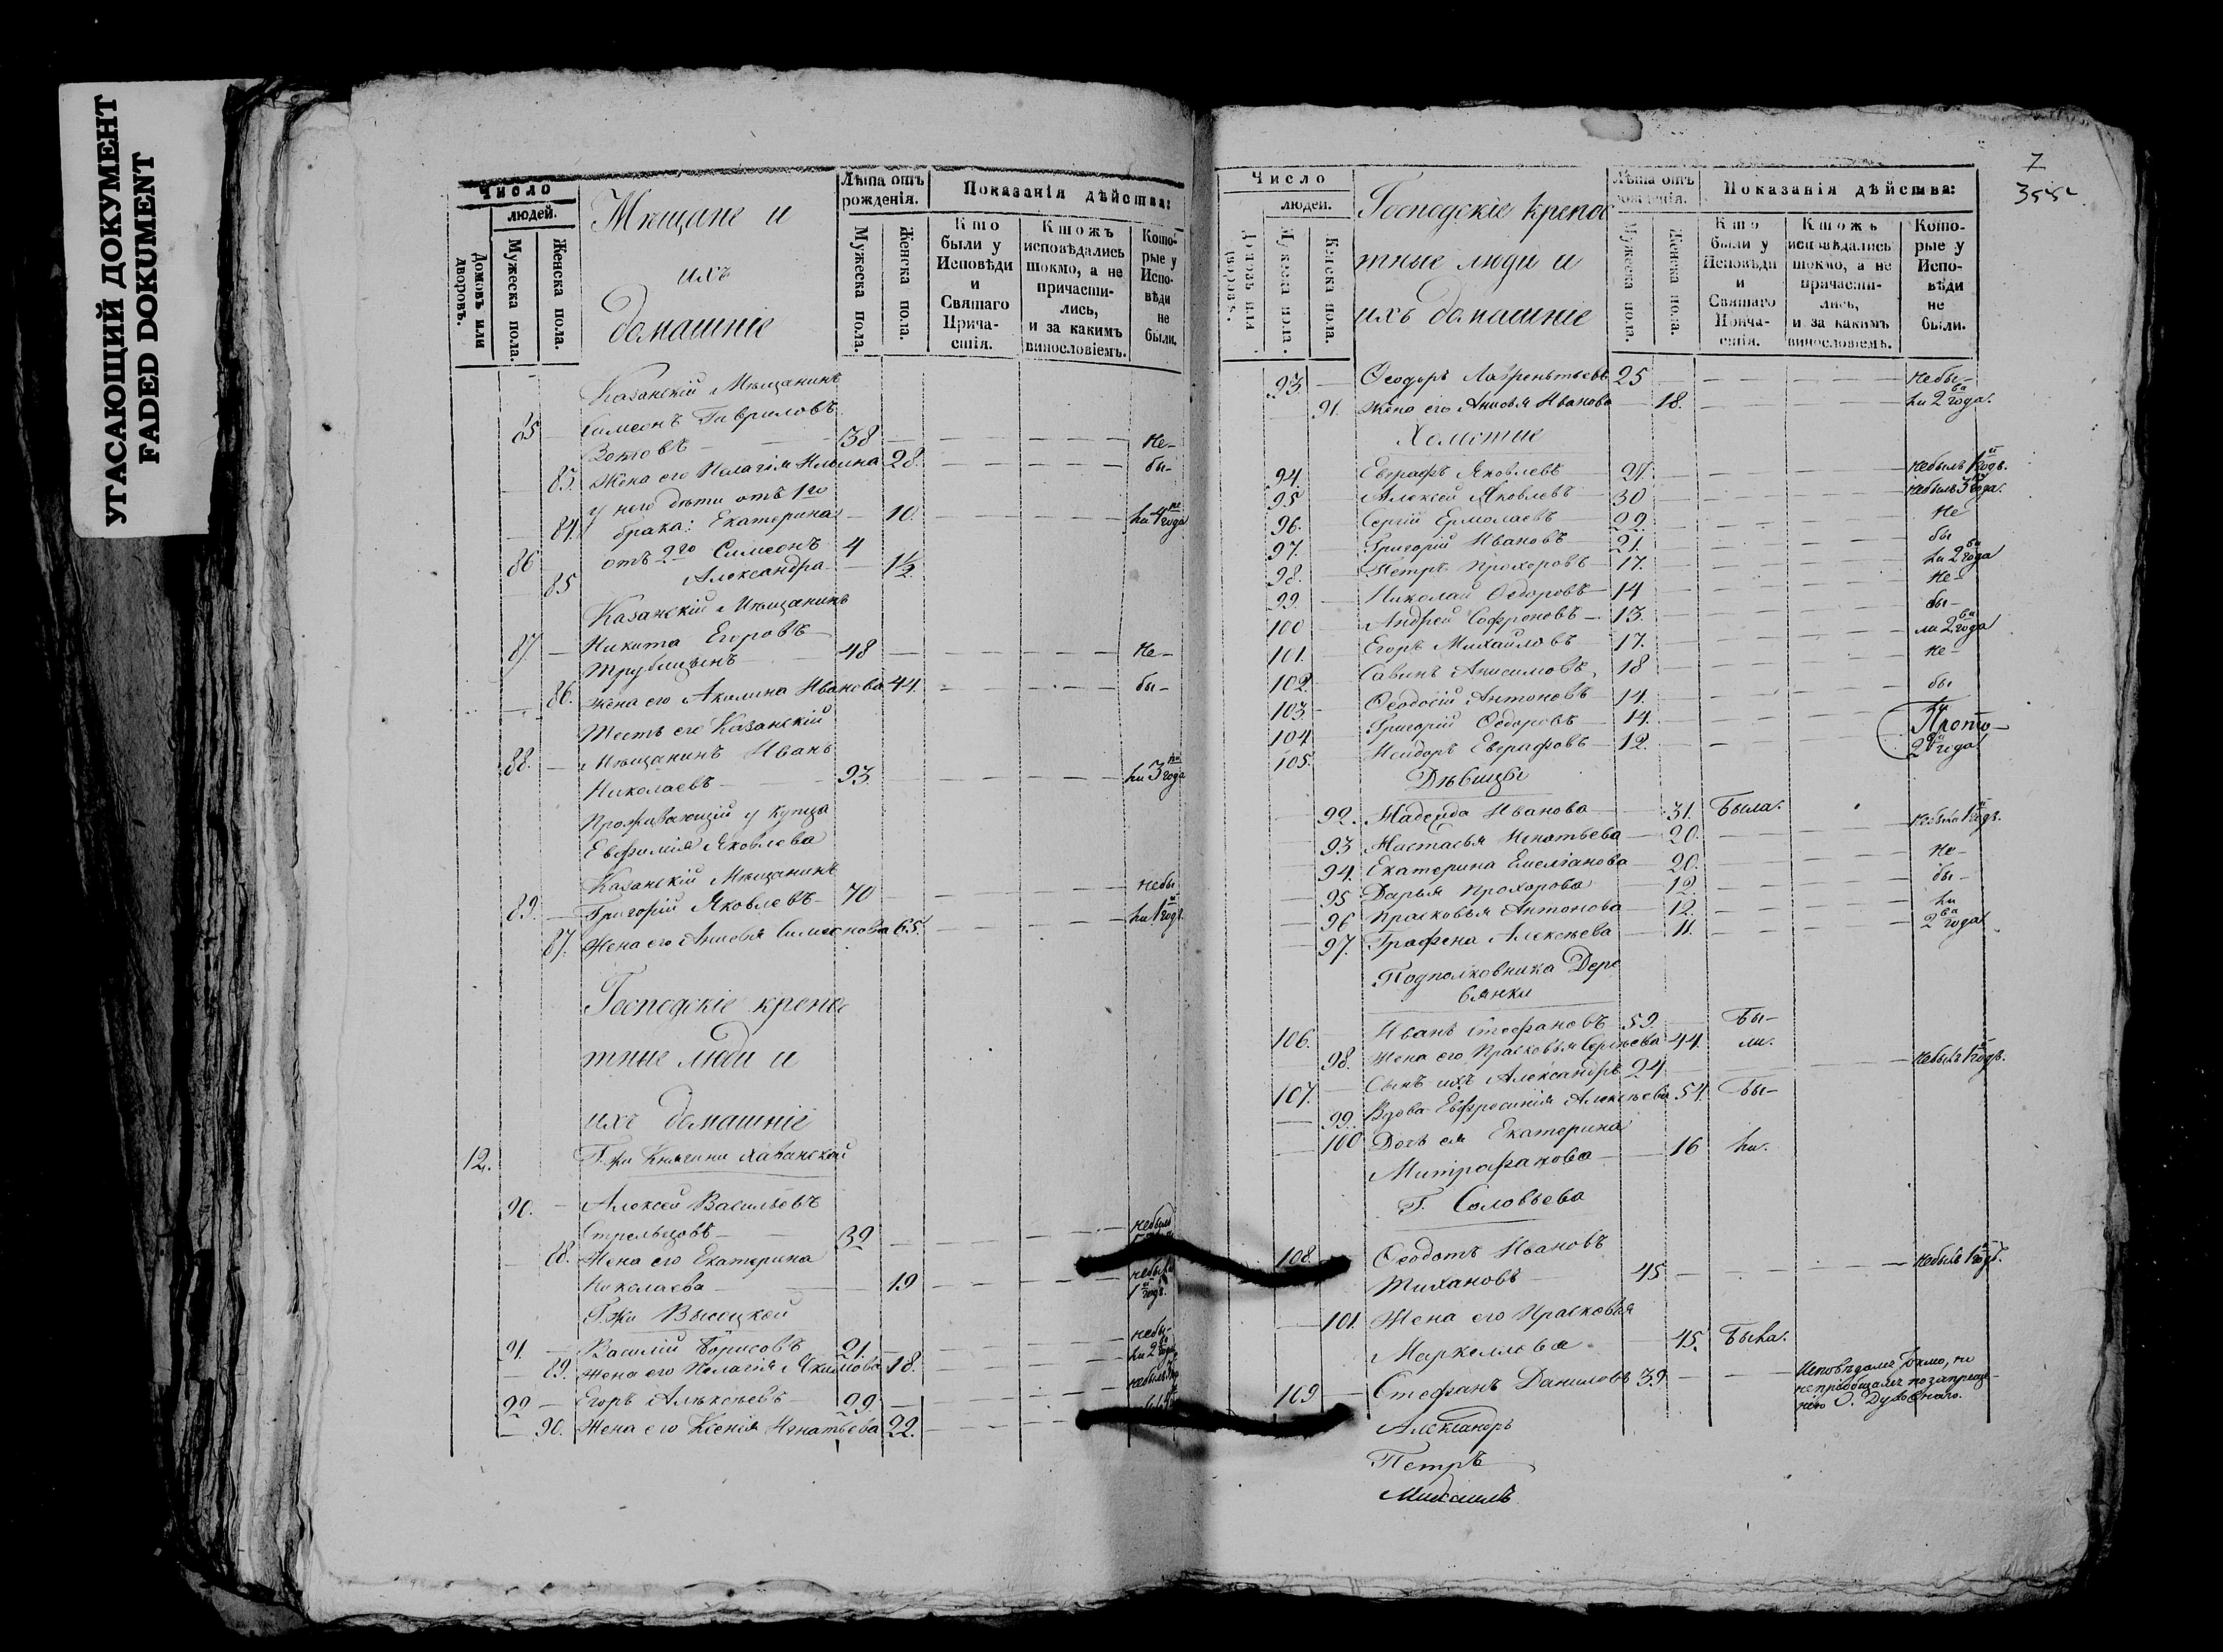 УГАСАЮЩИЙ ДОКУМЕНТ
FADED DOKUMENT
Число
людей.
Домовъ или дворовъ.
Мужеска пола.
Женска пола.
Мещане и
ихъ
домашніе
Лѣта отъ рожденія.
Мужеска пола.
Женска пола.
Показанія дѣйства:
Кто были у Исповѣди и Святаго Прича- стія.
Ктожъ исповѣдались токмо, а не причасти- лись, и за какимъ винословіемъ.
Кото- рые у Испо- вѣди не были.
Казанскій Мѣщанинъ
85 — Симеонъ Гавриловъ
Зотовъ — 38 — Не-
83. Жена его Пелагія Ильина 28. — бы-
у него дѣти отъ 1го
84. брака: Екатерина — 10. — ли 4ре года
86 отъ 2го Симеонъ 4
85 Александра — 1½
Казанскій Мѣщанинъ
87. — Никита Егоровъ
48 — Не-
86. Жена его Акилина Иванова 44. — бы-
Тесть его Казанскій
88. — Мѣщанинъ Иванъ
Николаевъ — 93. — ли 3ри года
Проживающій у Купца
Евфимія Яковлева
Казанскій Мѣщанинъ
89. — Григорій Яковлевъ — 70 — небы-
87. Жена его Анисья Симеонова 65. — ли 1й годъ.
Господскіе крепос
тные люди и
ихъ домашніе
12. Г.жи Княгини
90. — Алексей Васильевъ
Стрельцовъ — 39 — небылъ
88. Жена его Екатерина
Николаева — 19 — небыла 1й годъ.
Г.жи Высоцкой
91. — Василій Борисовъ 21. — небы-
89. Жена его Пелагія Якимова 18. — ли 2ва года
92 — Егоръ Алексѣевъ 29. —
90. Жена его Ксенія Игнатьева 22. —
7
Число
людей.
Домовъ или дворовъ.
Мужеска пола.
Женска пола.
Господскіе крепос
тные люди и
ихъ домашніе
Лѣта отъ рожденія.
Мужеска пола.
Женска пола.
Показанія дѣйства:
Кто были у Исповѣди и Святаго Прича- стія.
Ктожъ исповѣдались токмо, а не причасти- лись, и за какимъ винословіемъ.
Кото- рые у Испо- вѣди не были.
93. — Ѳеодоръ Лаврентьевъ 25 — Небы-
91. Жена его Анисья Иванова — 18. — ли 2ва года.
Холостые
94. — Евграфъ Яковлевъ — 24. — небылъ 1й годъ.
95 — Алексей Яковлевъ — 30 — небылъ 3ри года.
96. Сергій Ермолаевъ — 22. — Не
97. — Григорій Ивановъ — 21. — бы
98. — Петръ Прохоровъ — 17. — ли 2ва года
99. — Николай Ѳедоровъ — 14 — Не-
100 — Андрей Софроновъ — 13. — бы-
101. — Егоръ Михайловъ — 17. — ли 2ва года
102. — Савинъ Анисимовъ, 18 — не-
103. — Ѳеодосій Антоновъ — 14. — бы
104 — Григорій Ѳедоровъ — 14. — ли
105. — Исидоръ Евграфовъ — 12. — 2ва года
Прото-
Дѣвицы
92. Надежда Иванова — 31. Была.
93 Настасья Игнатьева — 20. — небыла 1й годъ.
94. Екатерина Емеліанова — 20. — Не-
95 Дарья Прохорова — 12 — бы-
96 Прасковья Антонова — 12. — ли
97. Графена Алексѣева — 11. — 2ва года
Подполковника Дере
вянки
106. — Иванъ Стефановъ 59. — Бы-
98. Жена его Прасковья Сергѣева 44. ли.
107. — Сынъ ихъ Александръ 24 — небылъ 1й годъ.
99. Вдова Евфросинія Алексѣева 54. Бы-
100 Дочь ея Екатерина
Митрофанова — 16 ли.
Г. Соловьева
108. — Ѳеодотъ Ивановъ
Тихановъ — 45 — небылъ 1й годъ.
101. Жена его Прасковья
Маркеллова — 45. Была.
109 — Стефанъ Даниловъ 39 — Исповѣдался токмо, но
непріобщался по запреще-
нію О. Духовнаго.
Александръ
Петръ
Михаилъ